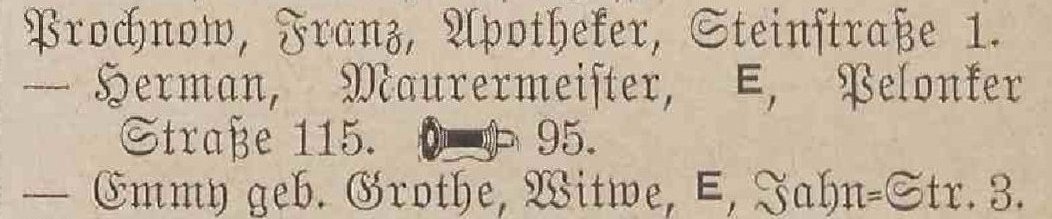 Prochnow, Franz, Apotheker, Steinstraße 1.
— Herman, Maurermeister, E, Pelonker
Straße 115. 95.
— Emmy geb. Grothe, Witwe, E, Jahn-Str. 3.